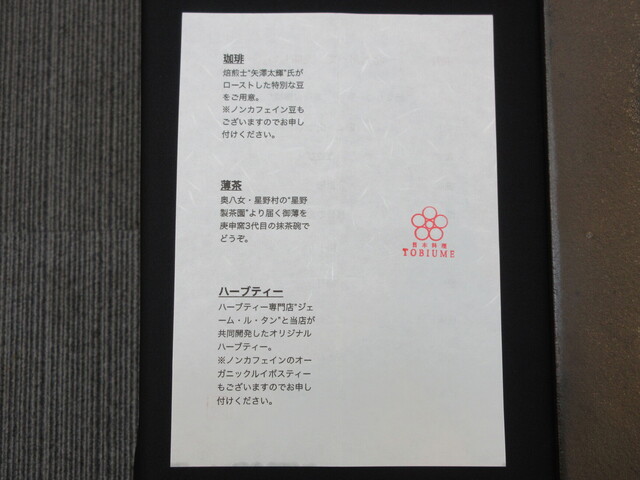 珈琲
焙煎士"矢澤太輝"氏が
ローストした特別な豆
をご用意。
※ノンカフェイン豆も
ございますのでお申し
付けください。
薄茶
奥八女・星野村の"星野
製茶園"より届く御薄を
庚申窯3代目の抹茶碗で
どうぞ。
日本料理
TOBIUME
ハーブティー
ハーブティー専門店"ジェ
ーム・ル・タン"と当店が
共同開発したオリジナル
ハーブティー。
※ノンカフェインのオー
ガニックルイボスティー
もございますのでお申し
付けください。